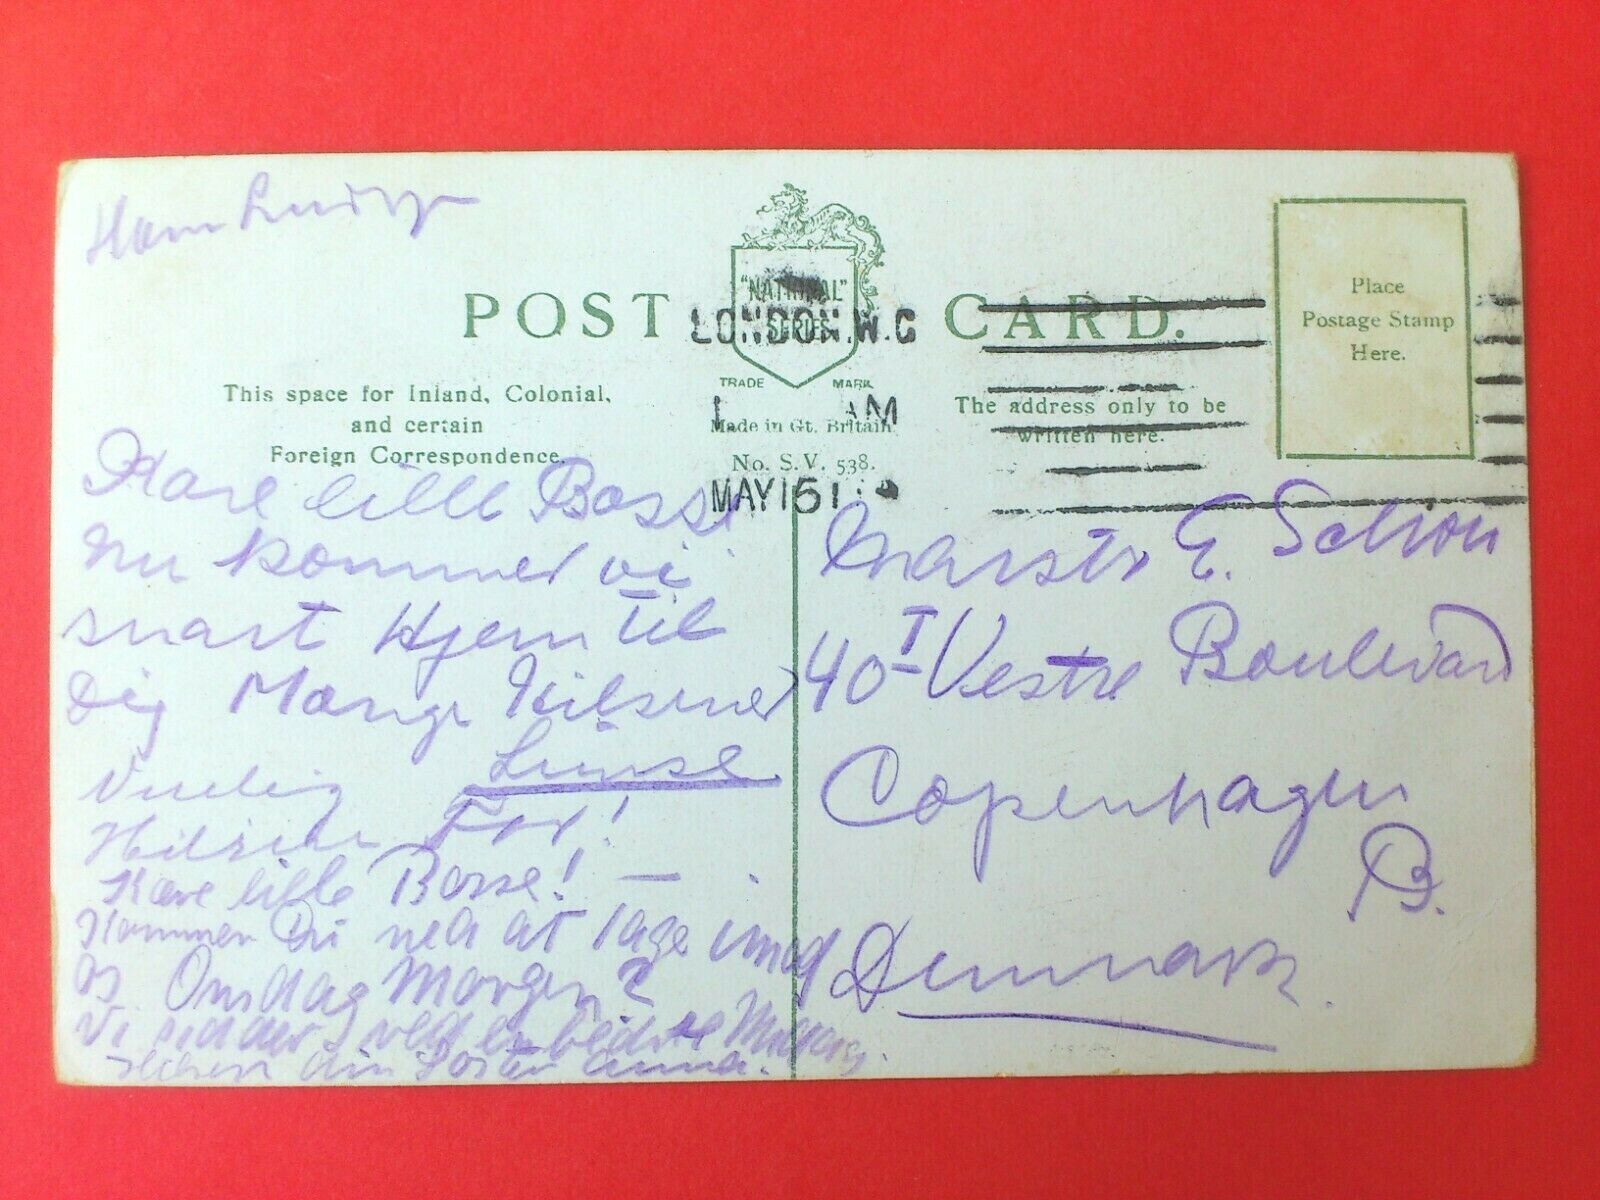 POST CARD.
"NATIONAL"
SERIES
TRADE MARK
Made in Gt. Britain.
No. S.V. 538.
LONDON.W.C
AM
MAY 15 1
Place
Postage Stamp
Here.
This space for Inland, Colonial,
and certain
Foreign Correspondence.
The address only to be
written here.
Kære lille Bosse
nu kommer vi
snart Hjem til
Dig Mange Hilsener
Venlig
Hilsen Far!
Kære lille Bosse! —
Kommer Du ned at tage imod
os Onsdag Morgen?
Vi sidder ved en
Hilsen din Søster Anna.
E. Schou
40 I Vestre Boulevard
Copenhagen
B.
Denmark.